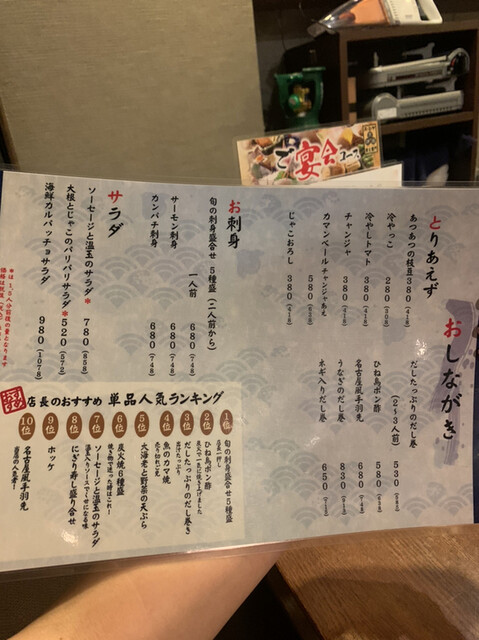 ご宴会コース
おしながき
とりあえず
あつあつの枝豆 380(418)
冷やっこ 280(308)
冷やしトマト 380(418)
チャンジャ 380(418)
カマンベールチャンジャあえ 580
じゃこおろし 380(418)
だしたっぷりのだし巻
(2〜3人前) 530(583)
ひね鳥ポン酢 580
名古屋風手羽先 680
うなぎのだし巻 830
ネギ入りだし巻 650
お刺身
旬の刺身盛合せ 5種盛(二人前から)
一人前 680(748)
サーモン刺身 680(748)
カンパチ刺身 680(748)
サラダ
ソーセージと温玉のサラダ* 780(858)
大根とじゃこのパリパリサラダ* 520(572)
海鮮カルパッチョサラダ 980(1078)
店長のおすすめ 単品人気ランキング
1位 旬の刺身盛合せ5種盛
店長一押し
2位 ひね鳥ポン酢
3位 だしたっぷりのだし巻き
4位 魚のカマ焼
売り切れご免
5位 大海老と野菜の天ぷら
6位 炭火焼6種盛
焼き物で迷った時はこれ!
7位 ソーセージと温玉のサラダ
8位 にぎり寿し盛り合せ
9位 ホッケ
10位 名古屋風手羽先